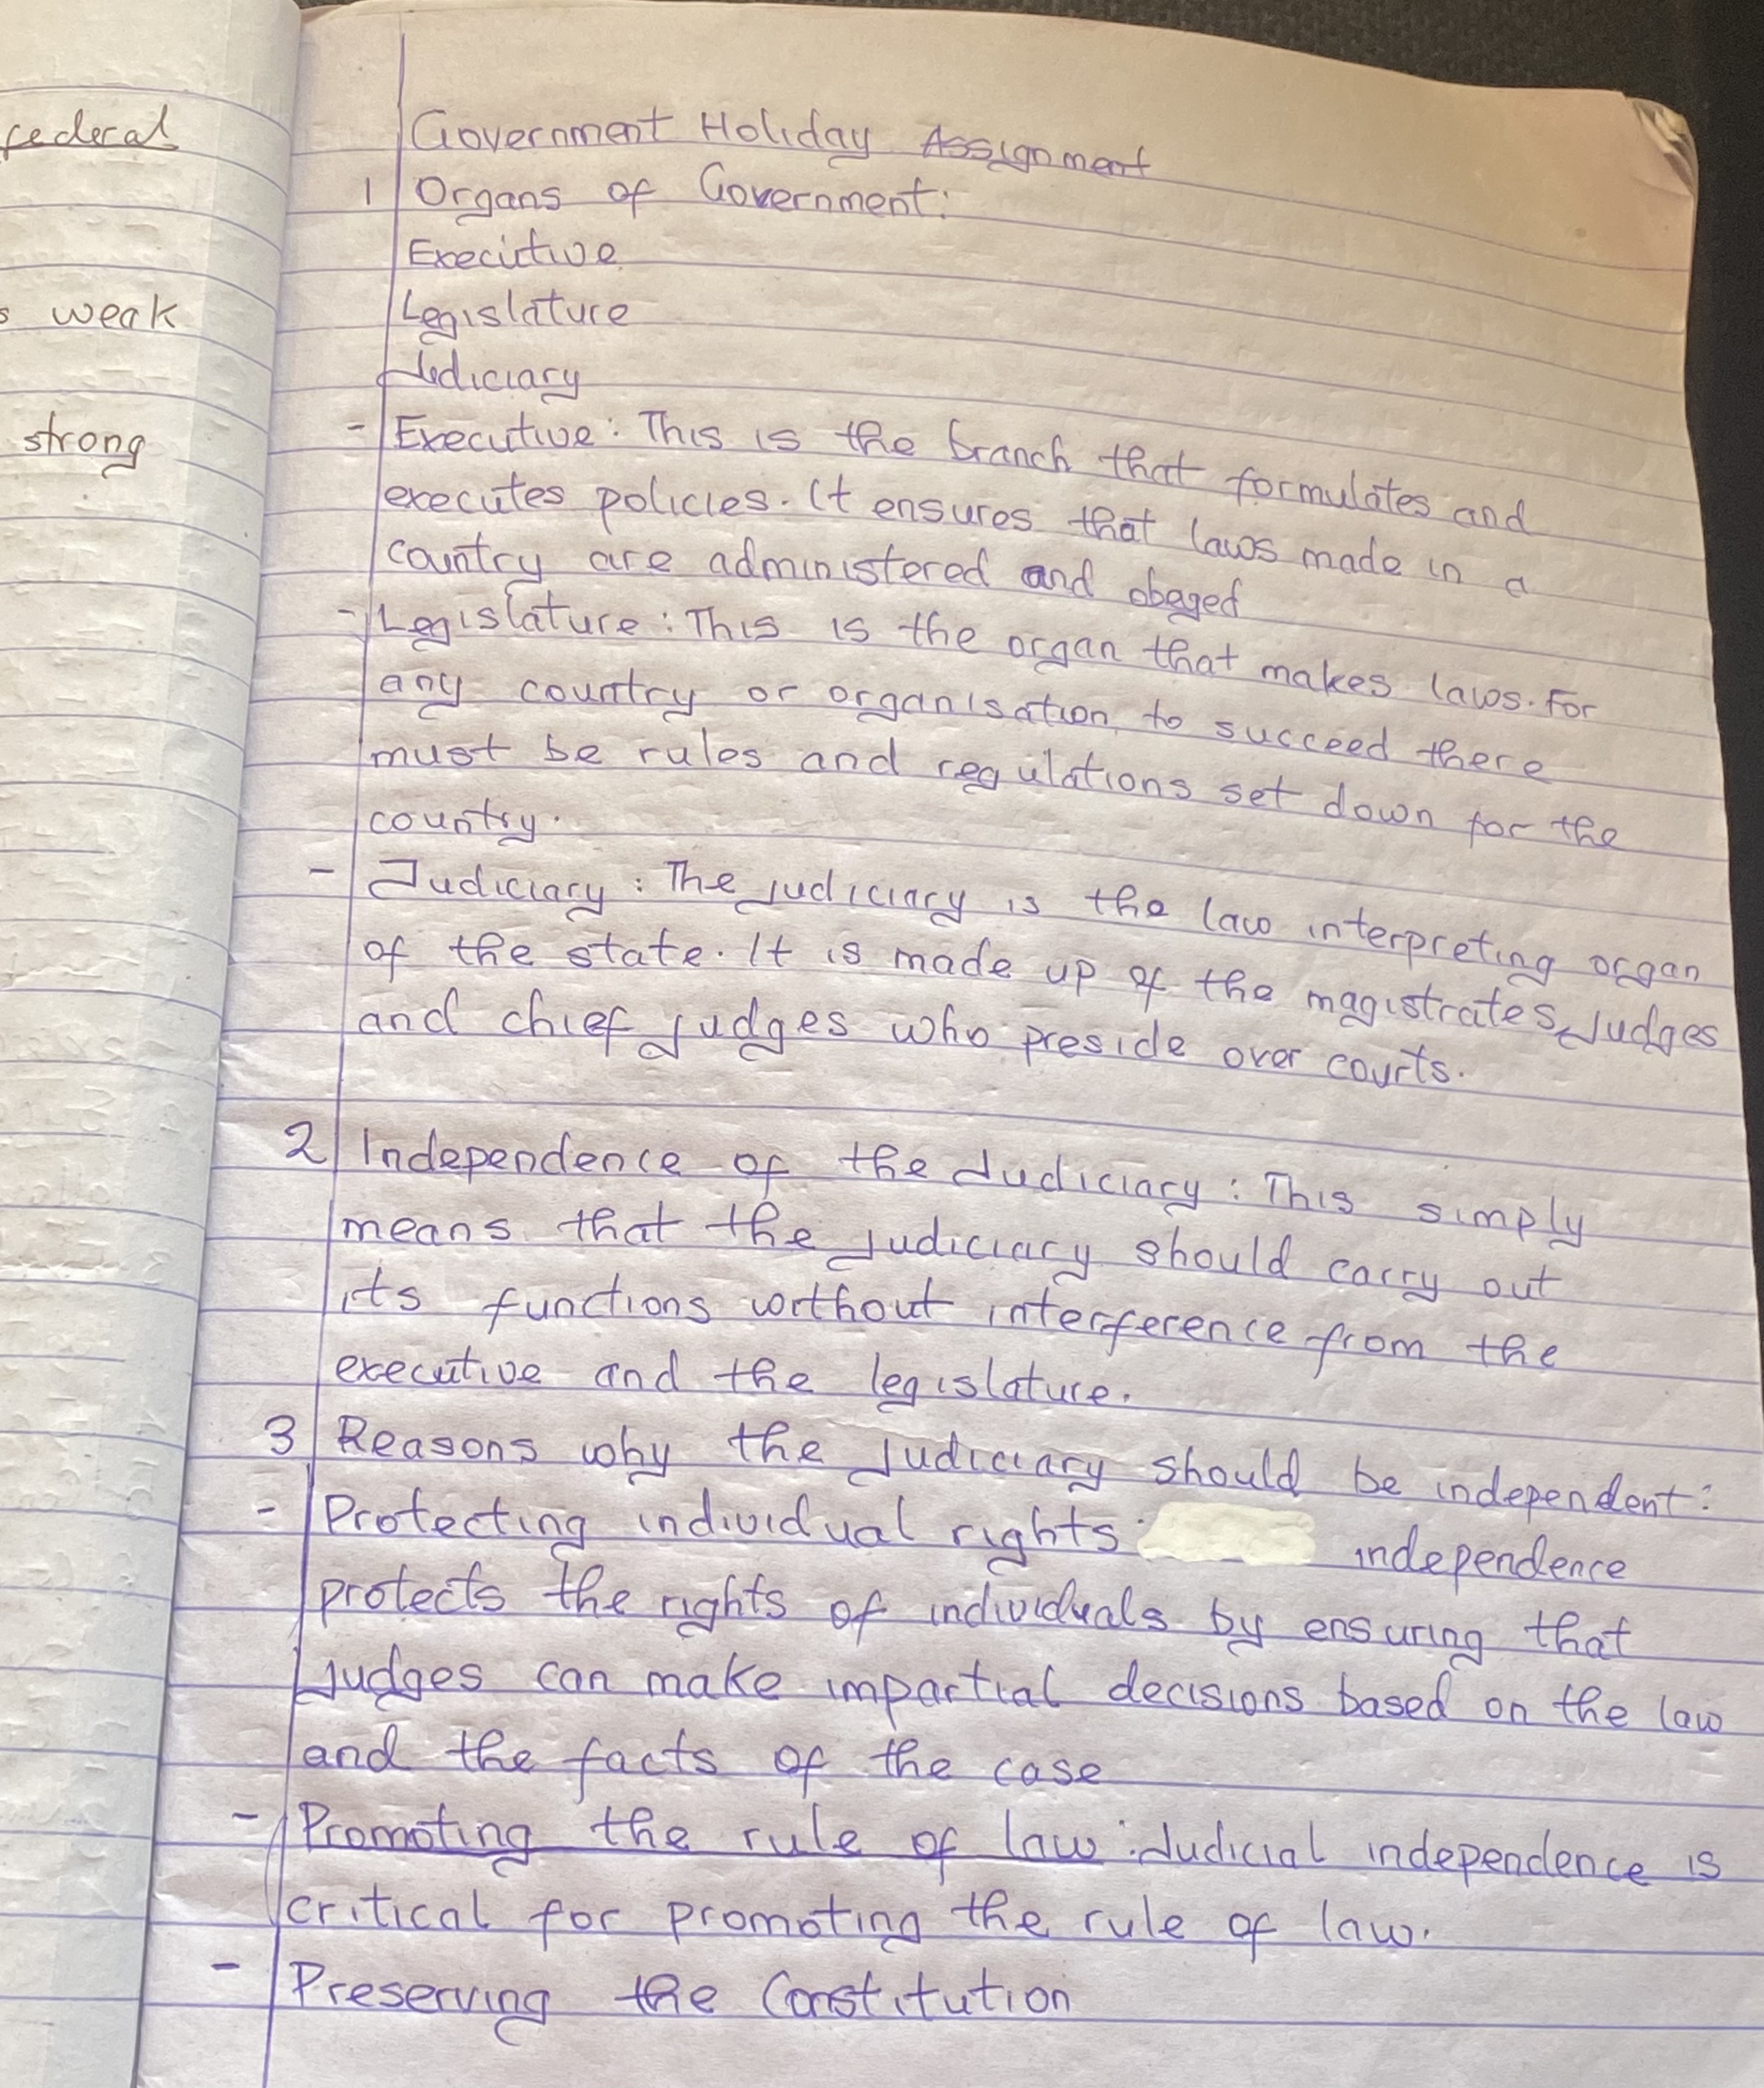 federal
weak
strong
Government Holiday Assignment
1 Organs of Government:
Executive
Legislature
Judiciary
- Executive: This is the branch that formulates and
executes policies. It ensures that laws made in a
country are administered and obeyed
- Legislature: This is the organ that makes laws. For
any country or organisation to succeed there
must be rules and regulations set down for the
country.
- Judiciary: The judiciary is the law interpreting organ
of the state. It is made up of the magistrates, Judges
and chief judges who preside over courts.
2 Independence of the Judiciary: This simply
means that the judiciary should carry out
its functions without interference from the
executive and the legislature.
3 Reasons why the judiciary should be independent:
- Protecting individual rights: independence
protects the rights of individuals by ensuring that
judges can make impartial decisions based on the law
and the facts of the case
- Promoting the rule of law: Judicial independence is
critical for promoting the rule of law.
- Preserving the Constitution